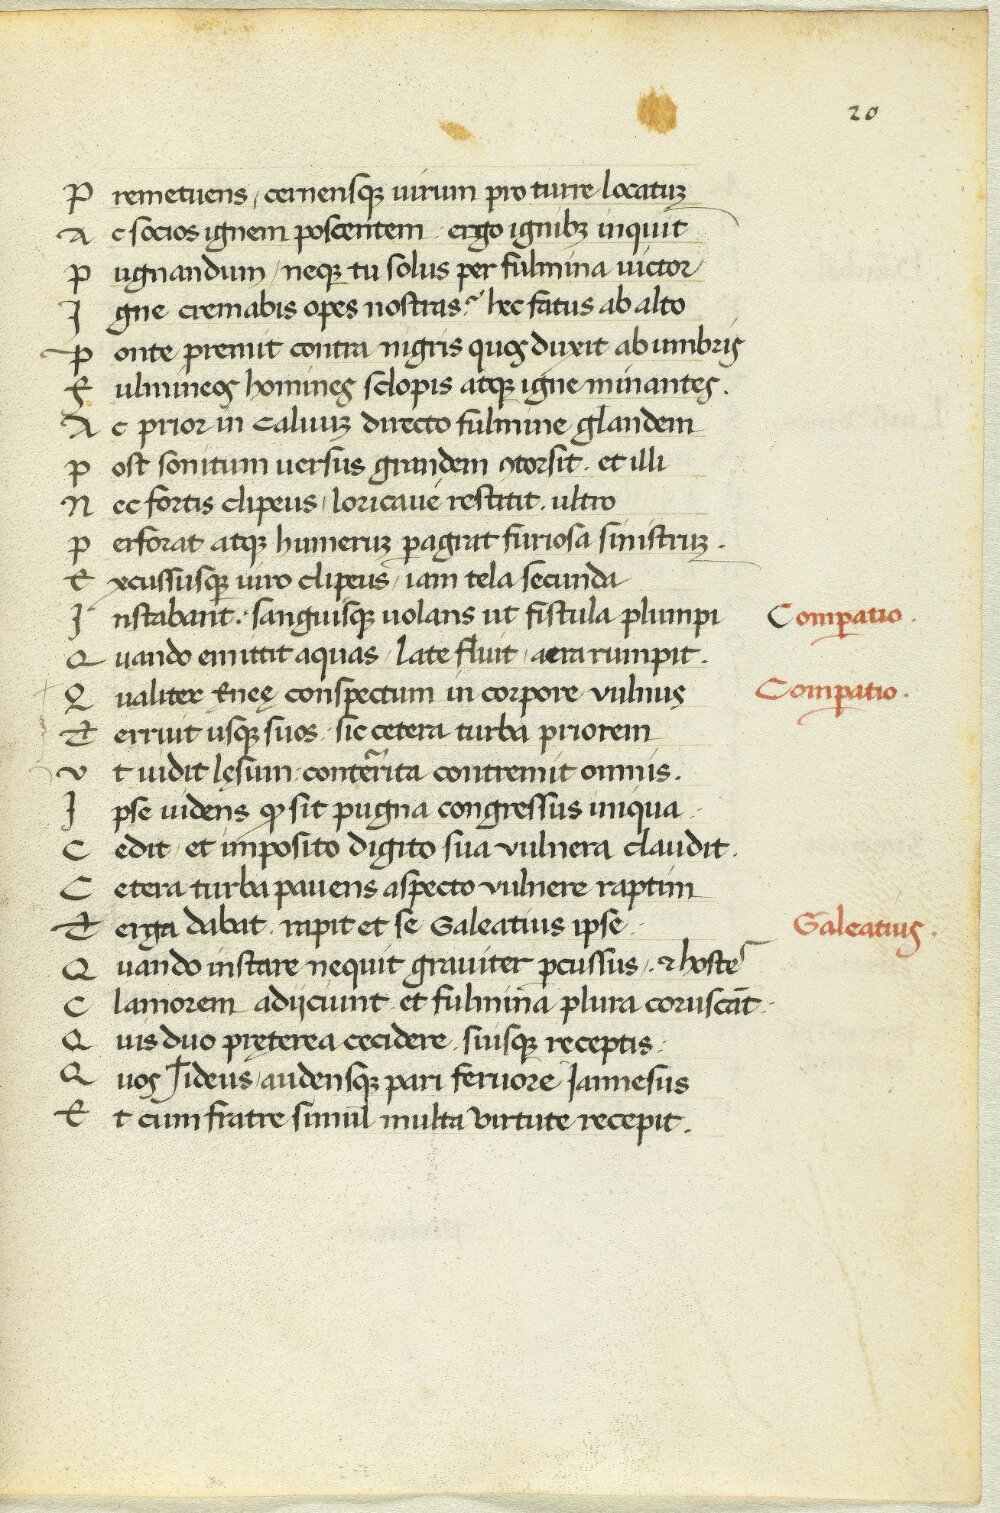 20
P remetuens, cernensqꝫ uirum pro turre locatuꝫ
A c socios ignem poscentem ergo ignibꝫ inquit
P ugnandum / neqꝫ tu solus per fulmina uictor
I gne cremabis opes nostras? hec fatus ab alto
P onte premit contra nigris quos duxit ab umbris
F ulmineos homines sclopis atqꝫ igne minantes.
A c prior in caluuꝫ directo fulmine glandem
P ost sonitum uersus grandem ꝯtorsit. et illi
N ec fortis clipeus / loricaue restitit. ultro
P erforat atqꝫ humeruꝫ ꝑagrat furiosa sinistruꝫ.
E xcussusqꝫ uiro clipeus / iam tela secunda
I nstabant. sanguisqꝫ uolans ut fistula plumpi Comꝑatio.
Q uando emittit aquas / late fluit / aera rumpit.
Q ualiter Eneę conspectum in corpore vulnus Comꝑatio.
T erruit usqꝫ suos. sic cetera turba priorem
V t uidit lęsum conterrita contremit omnis.
I pse uidens ꝙ sit pugna congressus iniqua
C edit / et imposito digito sua vulnera claudit.
C etera turba pauens aspecto vulnere raptim
T erga dabat. rapit et se Galeatius ipse. Galeatius.
Q uando instare nequit grauiter ꝑcussus. & hostes
C lamorem adijciunt et fulmina plura coruscāt.
Q uis duo pręterea cecidere. suisqꝫ receptis.
Q uos Tideus / audensqꝫ pari feruore Iannesus
E t cum fratre simul multa virtute recepit.